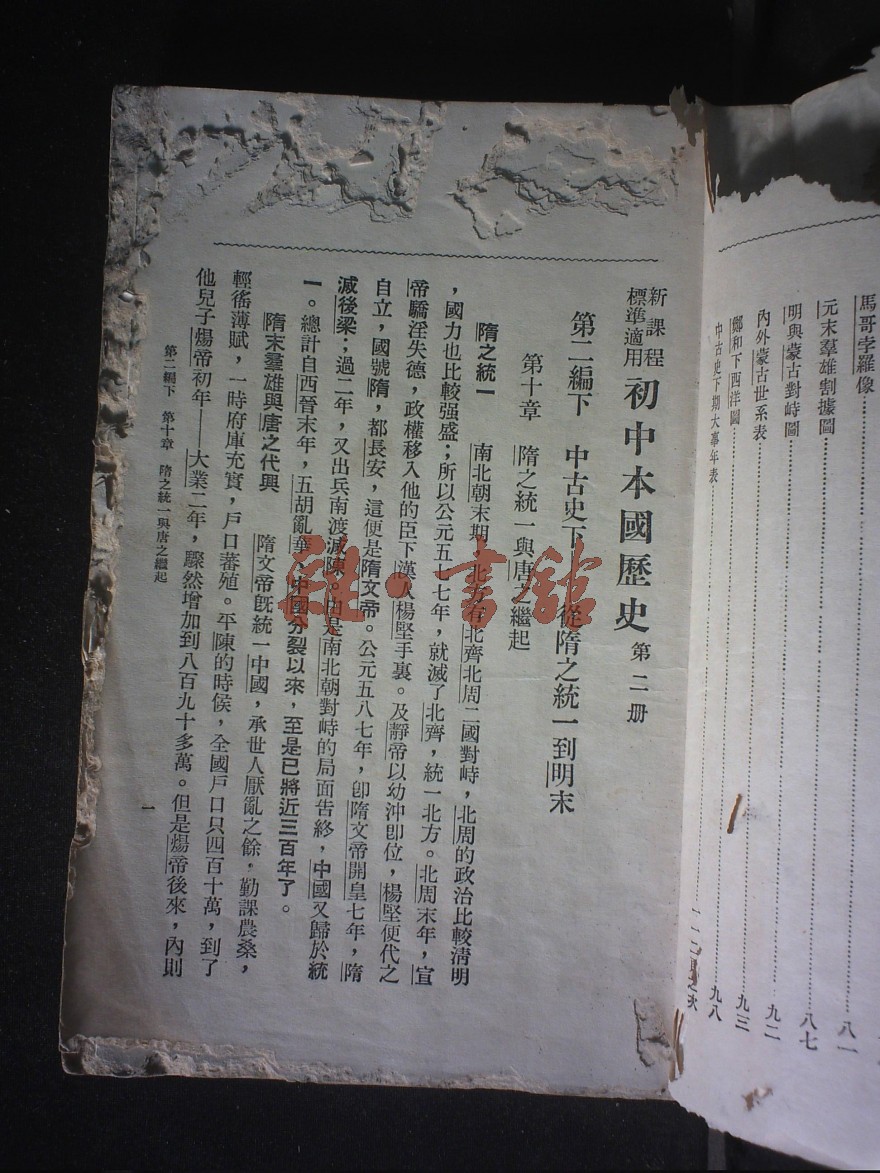 馬哥孛羅像 八一
元末羣雄割據圖 八七
明與蒙古對峙圖 九二
內外蒙古世系表 九三
鄭和下西洋圖 九八
中古史下期大事年表 之次
新課程
標準適用
初中本國歷史 第二册
第二編下 中古史下 從隋之統一到明末
第十章 隋之統一與唐之繼起
隋之統一 南北朝末期，北方有北齊北周二國對峙，北周的政治比較清明
，國力也比較强盛；所以公元五七七年，就滅了北齊，統一北方。北周末年，宣
帝驕淫失德，政權移入他的臣下漢人楊堅手裏。及靜帝以幼沖卽位，楊堅便代之
自立，國號隋，都長安，這便是隋文帝。公元五八七年，卽隋文帝開皇七年，隋
滅後梁；過二年，又出兵南渡滅陳。由是南北朝對峙的局面告終，中國又歸於統
一。總計自西晉末年，五胡亂華、中國分裂以來，至是已將近三百年了。
隋末羣雄與唐之代興 隋文帝旣統一中國，承世人厭亂之餘，勤課農桑，
輕徭薄賦，一時府庫充實，戶口蕃殖。平陳的時候，全國戶口只四百十萬，到了
他兒子煬帝初年——大業二年，驟然增加到八百九十多萬。但是煬帝後來，內則
第二編下 第十章 隋之統一與唐之繼起
一
雜·書館